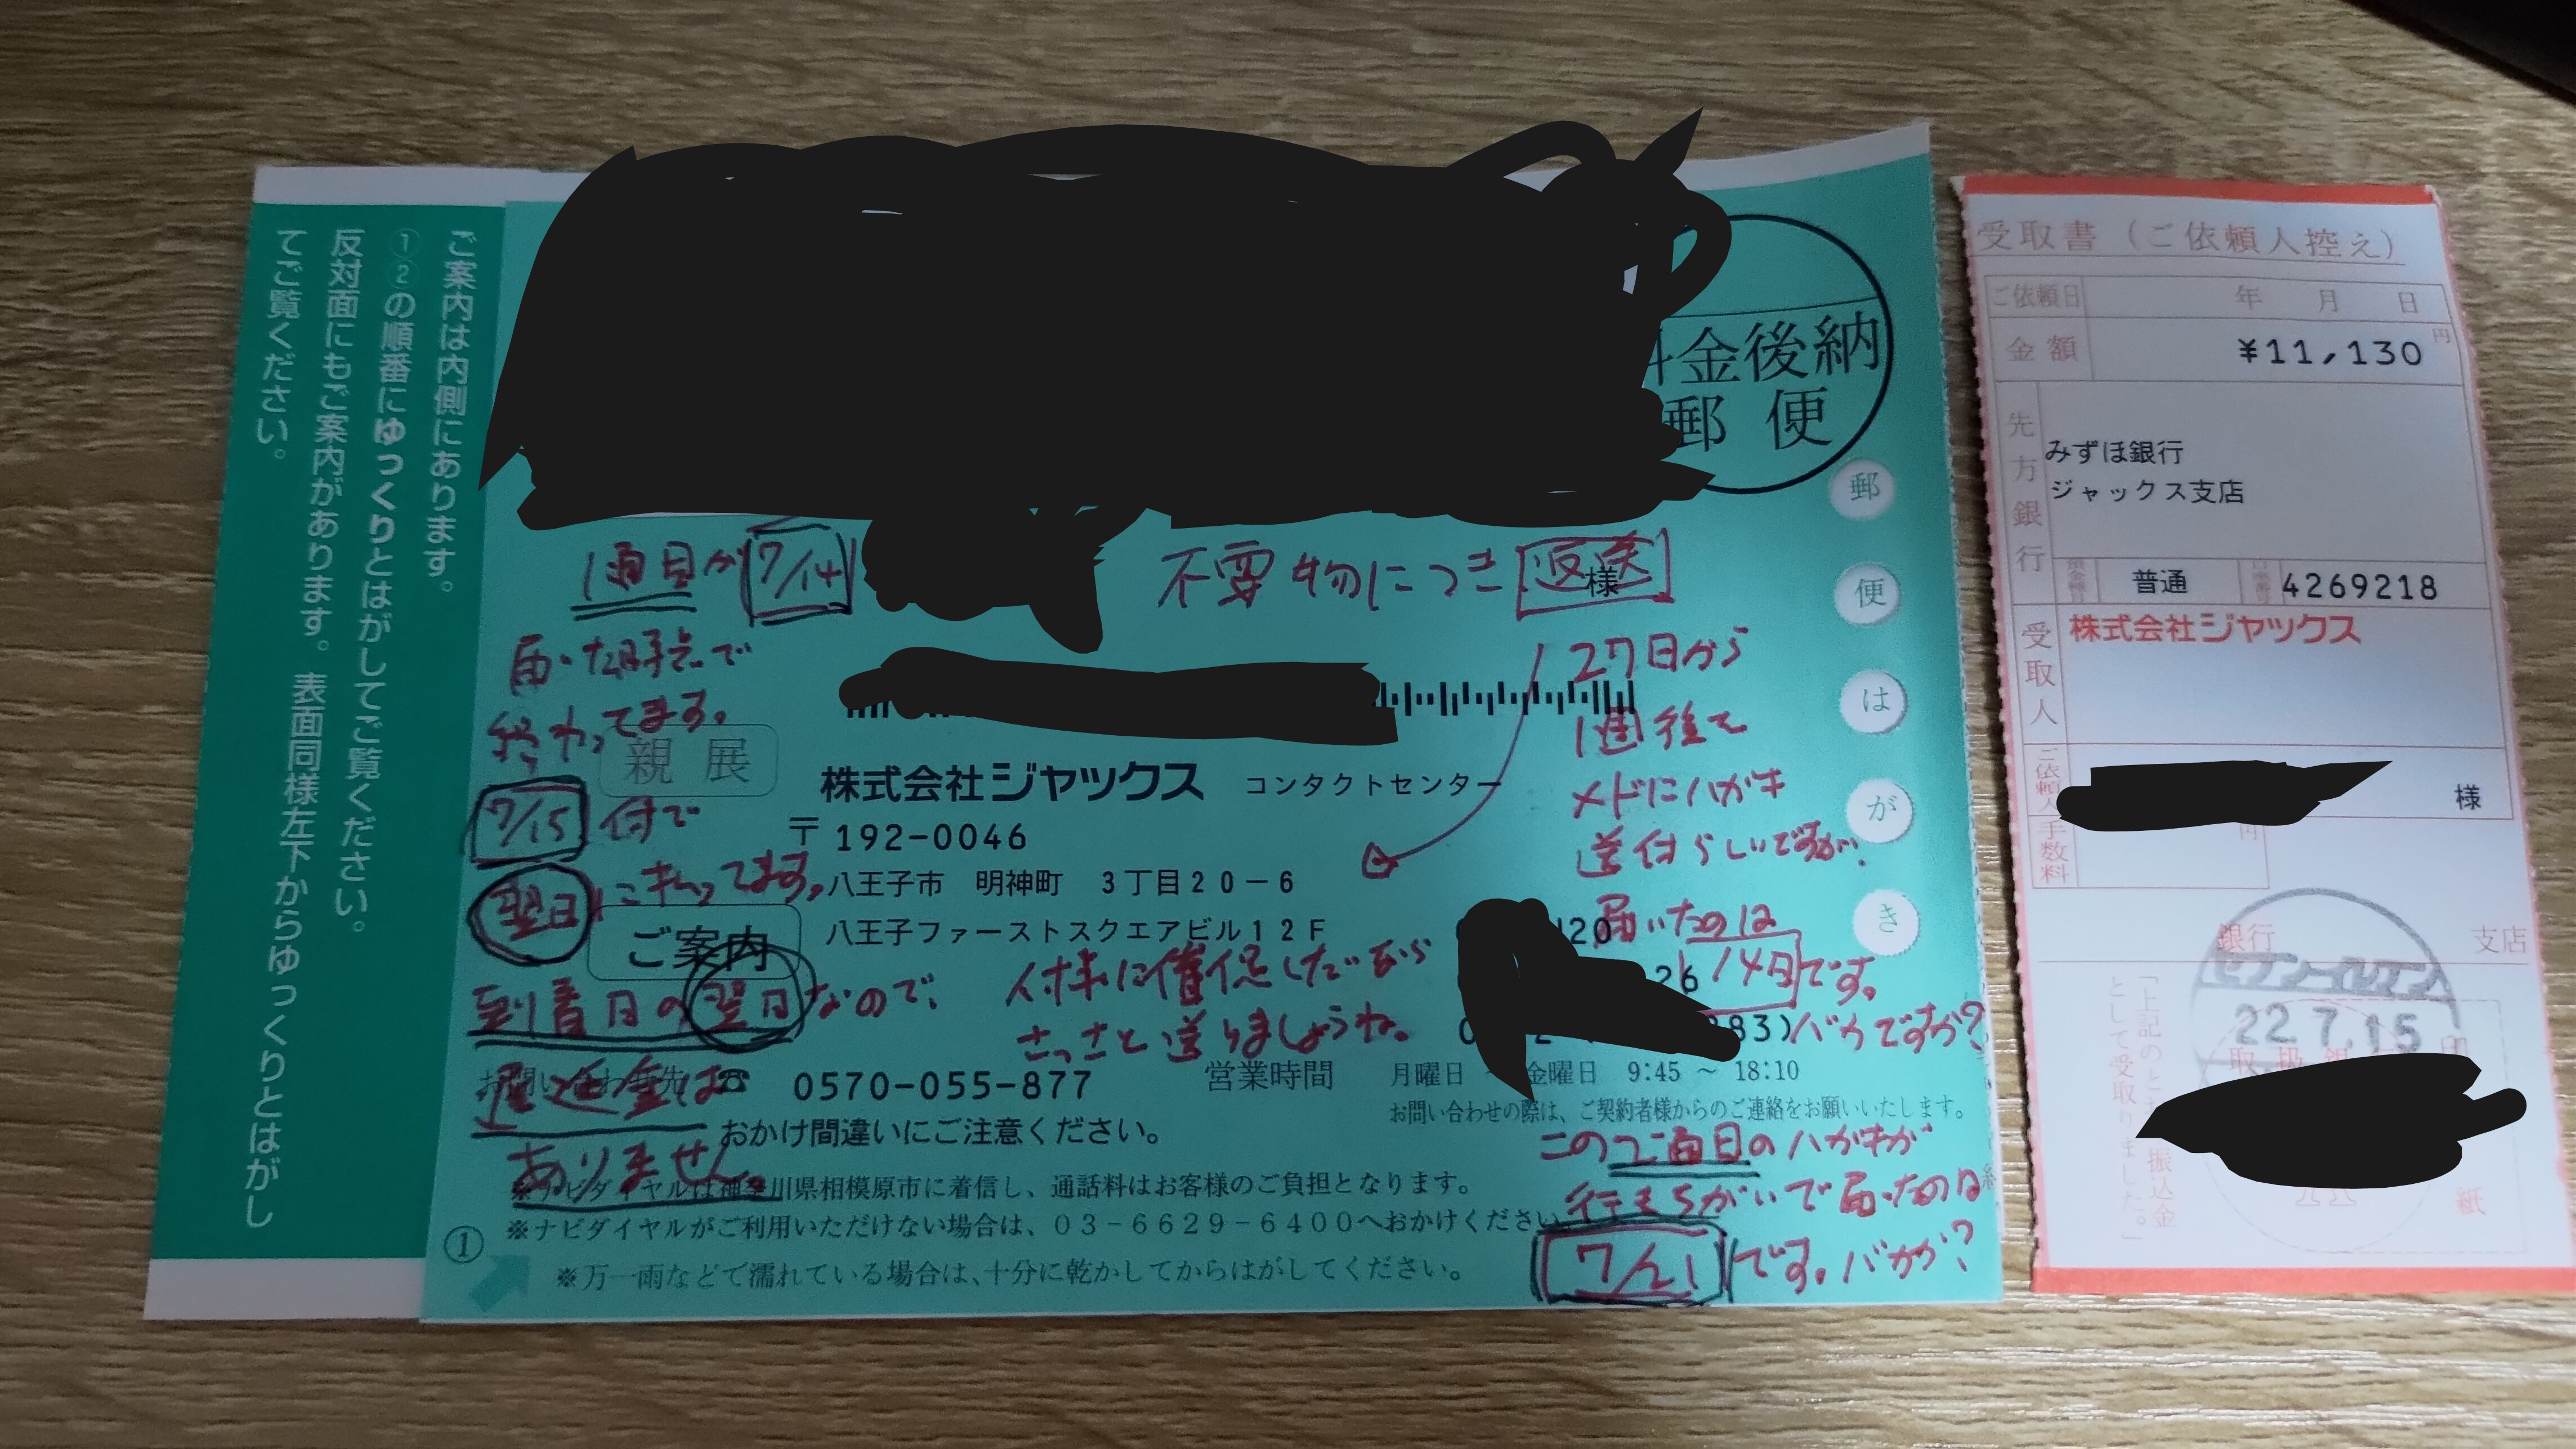 ご案内は内側にあります。
①②の順番にゆっくりとはがしてご覧ください。
反対面にもご案内があります。表面同様左下からゆっくりとはがし
てご覧ください。
料金後納
郵便
郵便はがき
1通目が7/14
届いた時点で
終わってます。
7/15付で
翌日に払ってます。
到着日の翌日なので、
遅延金は
ありません。
不要物につき返送
様
27日から
1週後で
メドにハガキ
送付らしいですが、
届いたのは
14日です。
バカですか?
親展
株式会社ジャックス コンタクトセンター
〒192-0046
八王子市 明神町 3丁目20-6
八王子ファーストスクエアビル12F
ご案内
120
26
83)
人様に催促したいなら
さっさと送りましょうね。
お問い合わせ先 ☎ 0570-055-877 営業時間 月曜日 ~ 金曜日 9:45 ~ 18:10
お問い合わせの際は、ご契約者様からのご連絡をお願いいたします。
おかけ間違いにご注意ください。
この2通目のハガキが
行きちがいで届いたのは
7/21です。バカか?
※ナビダイヤルは神奈川県相模原市に着信し、通話料はお客様のご負担となります。
※ナビダイヤルがご利用いただけない場合は、03-6629-6400へおかけください。
※万一雨などで濡れている場合は、十分に乾かしてからはがしてください。
①
受取書(ご依頼人控え)
ご依頼日 年 月 日
金額 ¥11,130 円
先方銀行
みずほ銀行
ジャックス支店
普通 4269218
受取人
株式会社ジャックス
ご依頼人 様
手数料 円
銀行 支店
セブン-イレブン
22.7.15
「上記のとおり振込金
として受取りました。」